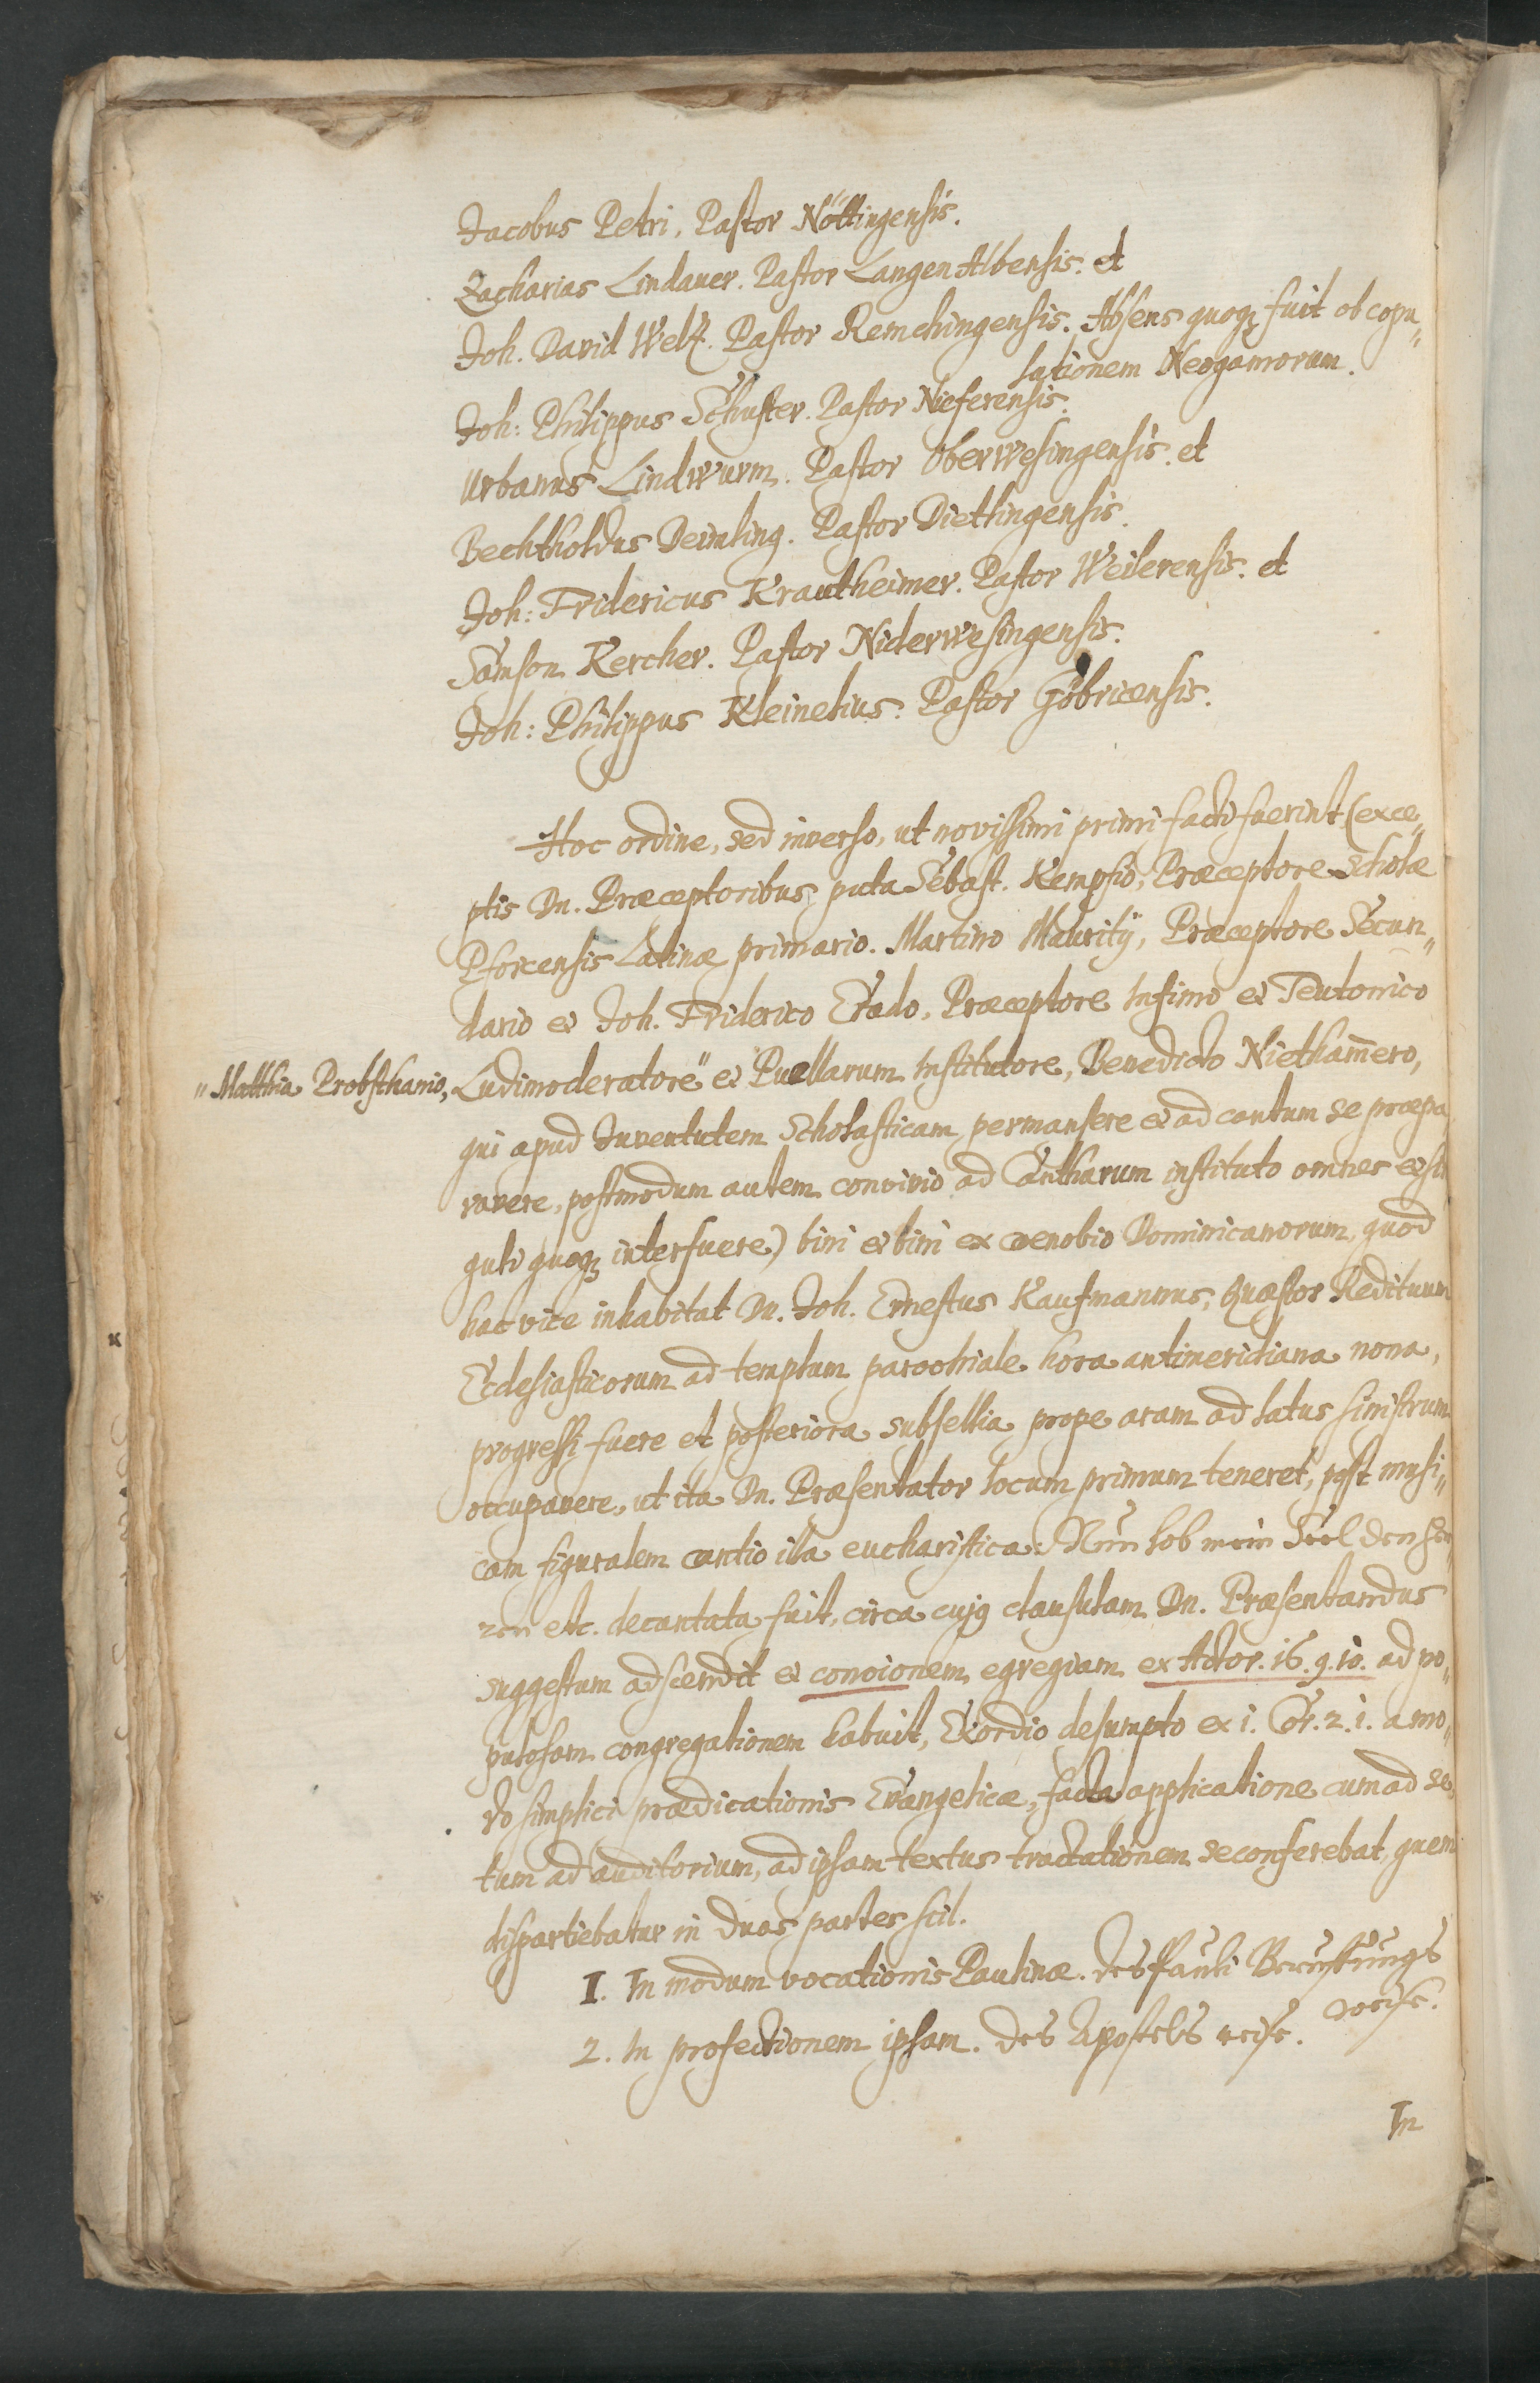 Jacobus Petri, Pastor Nöttingensis.
Zacharias Lindauer. Pastor LangenAlbensis. et
Joh. David Welz. Pastor Remchingensis. Absens quoqꝫ fuit ob copu„
lationem Neogamorum.
Joh: Philippus Schuster. Pastor Nieferensis.
Urbanus Lindwurm. Pastor Oberwesingensis. et
Bechtholdus Deimling. Pastor Dietlingensis.
Joh: Fridericus Krautheimer. Pastor Weilerensis. et
Samson Kercher. Pastor Niderwesingensis.
Joh: Philippus Kleinelius. Pastor Göbricensis.
Hoc ordine, sed inverso, ut novissimi primi facti fuerint (exce„
ptis Dn. Præceptoribus, puta Sebast. Kempfio, Præceptore Scholæ
Pforcensis Latinæ primario. Martino Maurity, Præceptore Secun„
dario et Joh. Friderico Erado, Præceptore Infimo et Teutonico
„Matthia Probsthanio, Ludimoderatore" et Puellarum Institutore, Benedicto Nietham̄ero,
qui apud Juventutem Scholasticam permansere et ad cantum se præpa
ravere, postmodum autem convivio ad Cantharum instituto omnes et sin
guli quoqꝫ interfuere) bini et bini ex coenobio Dominicanorum, quod
hac vice inhabitat Dn. Joh. Ernestus Kaufmannus, Quæstor Redituum
Ecclesiasticorum ad templum parochiale hora antimeridiana nona,
progressi fuere et posteriora subsellia prope aram ad latus sinistrum
occupavere, ut ita Dn. Præsentator locum primum teneret, post musi„
cam figuralem cantio illa eucharistica: Nun lob mein Seel den Her„
ren etc. decantata fuit, circa cujꝫ clausulam Dn. Præsentandus
suggestum adscendit et concionem egregiam ex Actor. 16. 9. 10. ad po„
pulosam congregationem habuit, Exordio desumpto ex 1. Cor. 2. 1. a mo„
do simplici prædicationis Evangelicæ, facta applicatione cum ad se
tum ad auditorium, ad ipsam textus tractationem se conferebat, quem
dispartiebatur in duas partes scil.
I. In modum vocationis Paulinæ. des Pauli Beruffungs
weise.
2. In profectionem ipsam. des Apostels reise.
In